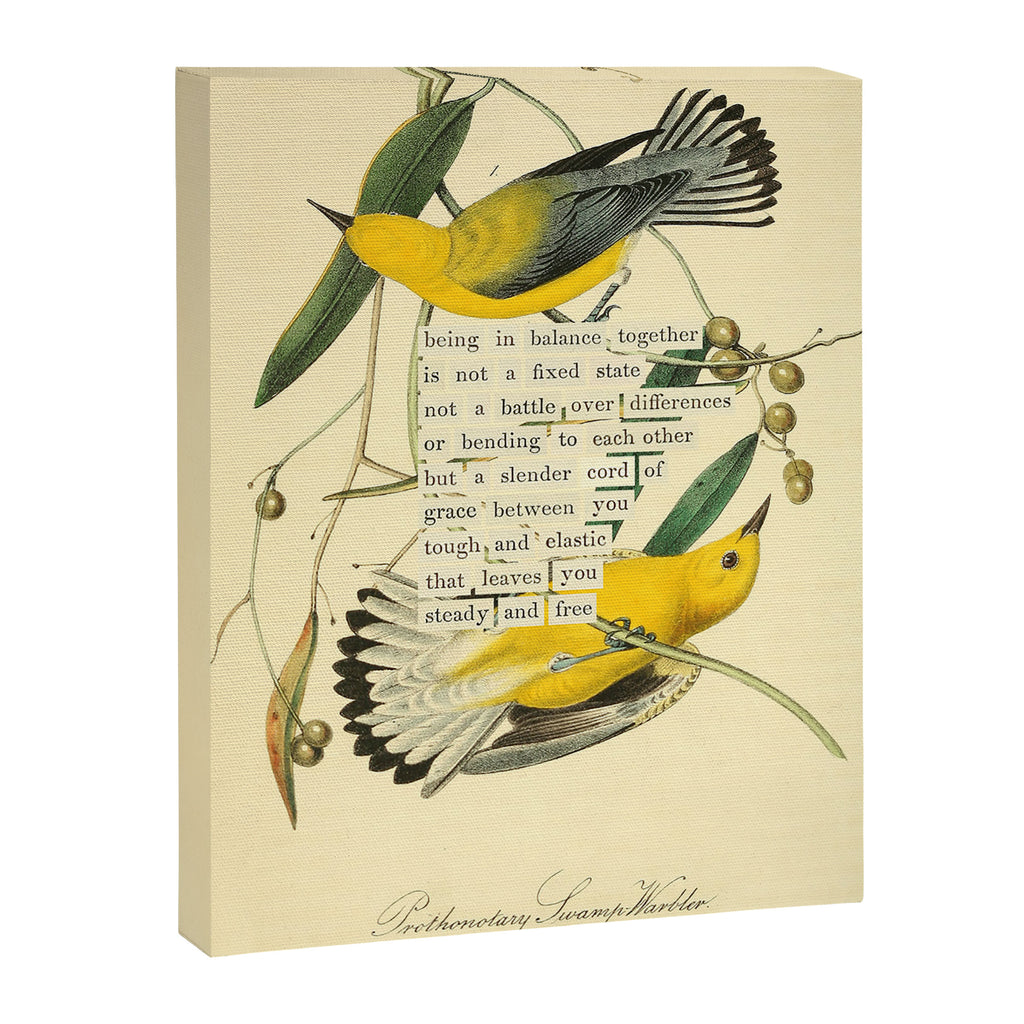 1.
being in balance together
is not a fixed state
not a battle over differences
or bending to each other
but a slender cord of
grace between you
tough and elastic
that leaves you
steady and free
Prothonotary Swamp-Warbler.